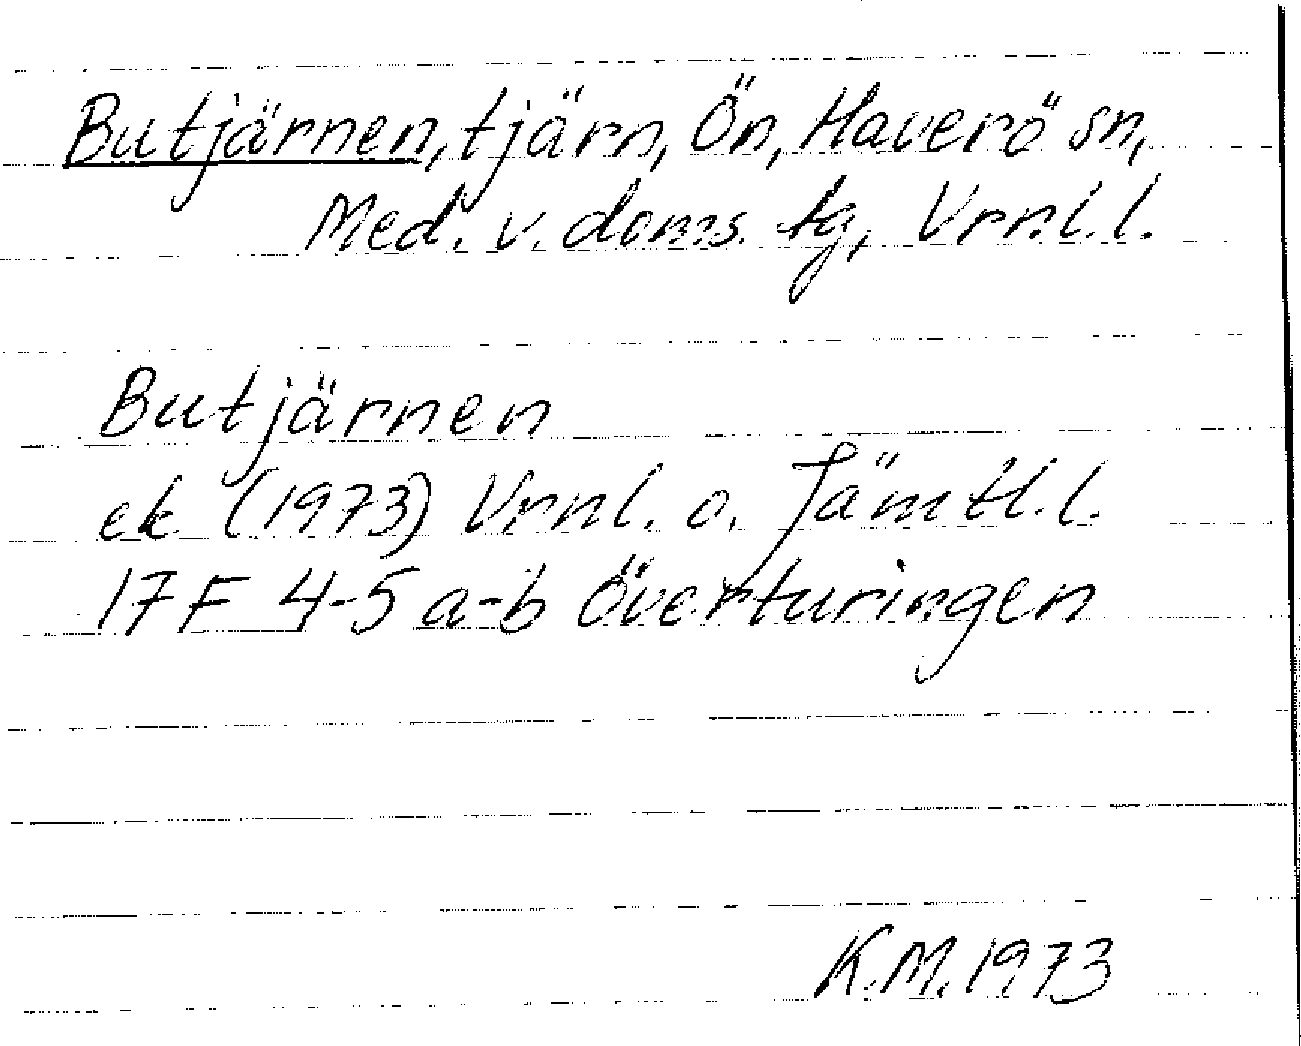 Butjärnen, tjärn, Ön, Haverö sn,
Med. v. doms. tg, Vrnl. l.
Butjärnen
ek (1973) Vrnl. o. Jämtl. l.
17 F 4-5 a-b Överturingen
K.M. 1973